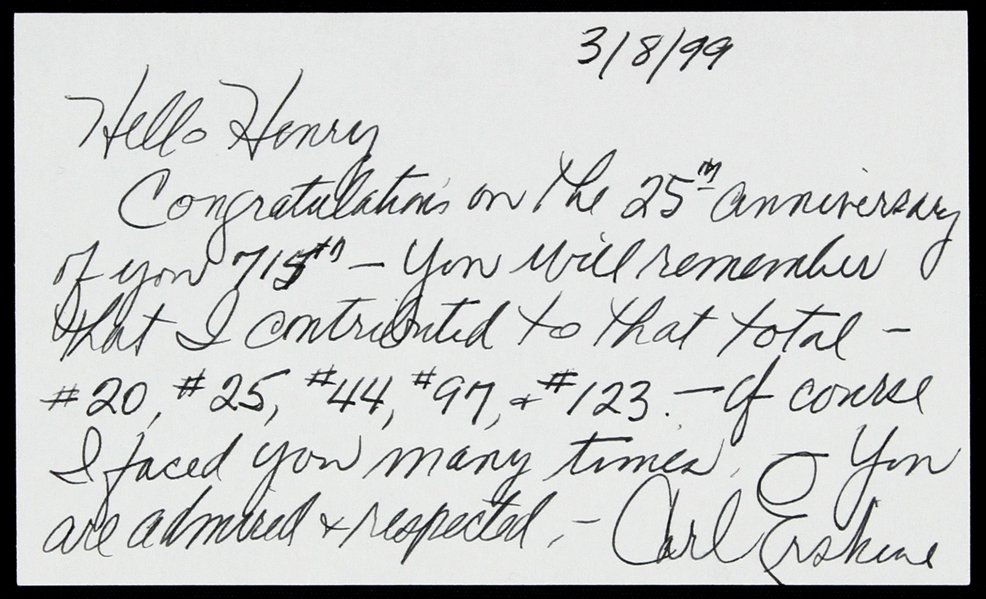 3/8/99
Hello Henry
Congratulations on the 25th anniversary
of your 715th – You will remember
that I contributed to that total –
#20, #25, #44, #97, & #123. – Of course
I faced you many times. – You
are admired & respected, – Carl Erskine